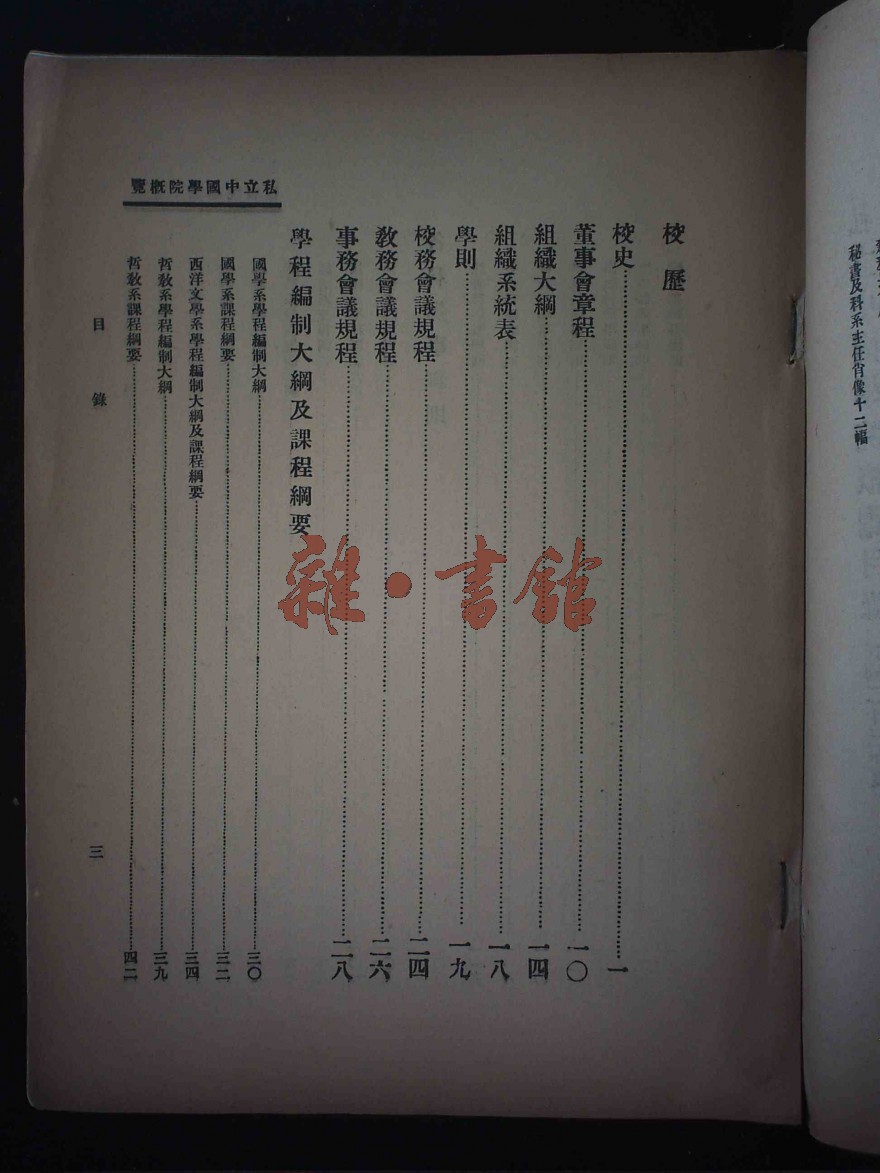 秘書及科系主任肖像十二幅
私立中國學院概覽
校歷
校史……一
董事會章程……一〇
組織大綱……一四
組織系統表……一八
學則……一九
校務會議規程……二四
教務會議規程……二六
事務會議規程……二八
學程編制大綱及課程綱要
國學系學程編制大綱……三〇
國學系課程綱要……三二
西洋文學系學程編制大綱及課程綱要……三四
哲教系學程編制大綱……三九
哲教系課程綱要……四二
目錄
三
雜·書館